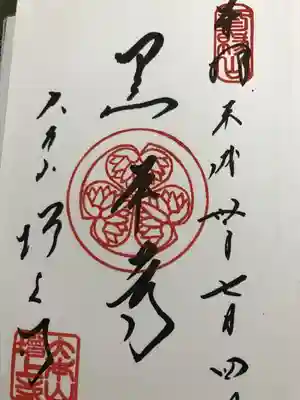 奉拝
平成卅年七月四日
黒本尊
大本山増上寺
大本山
増上寺